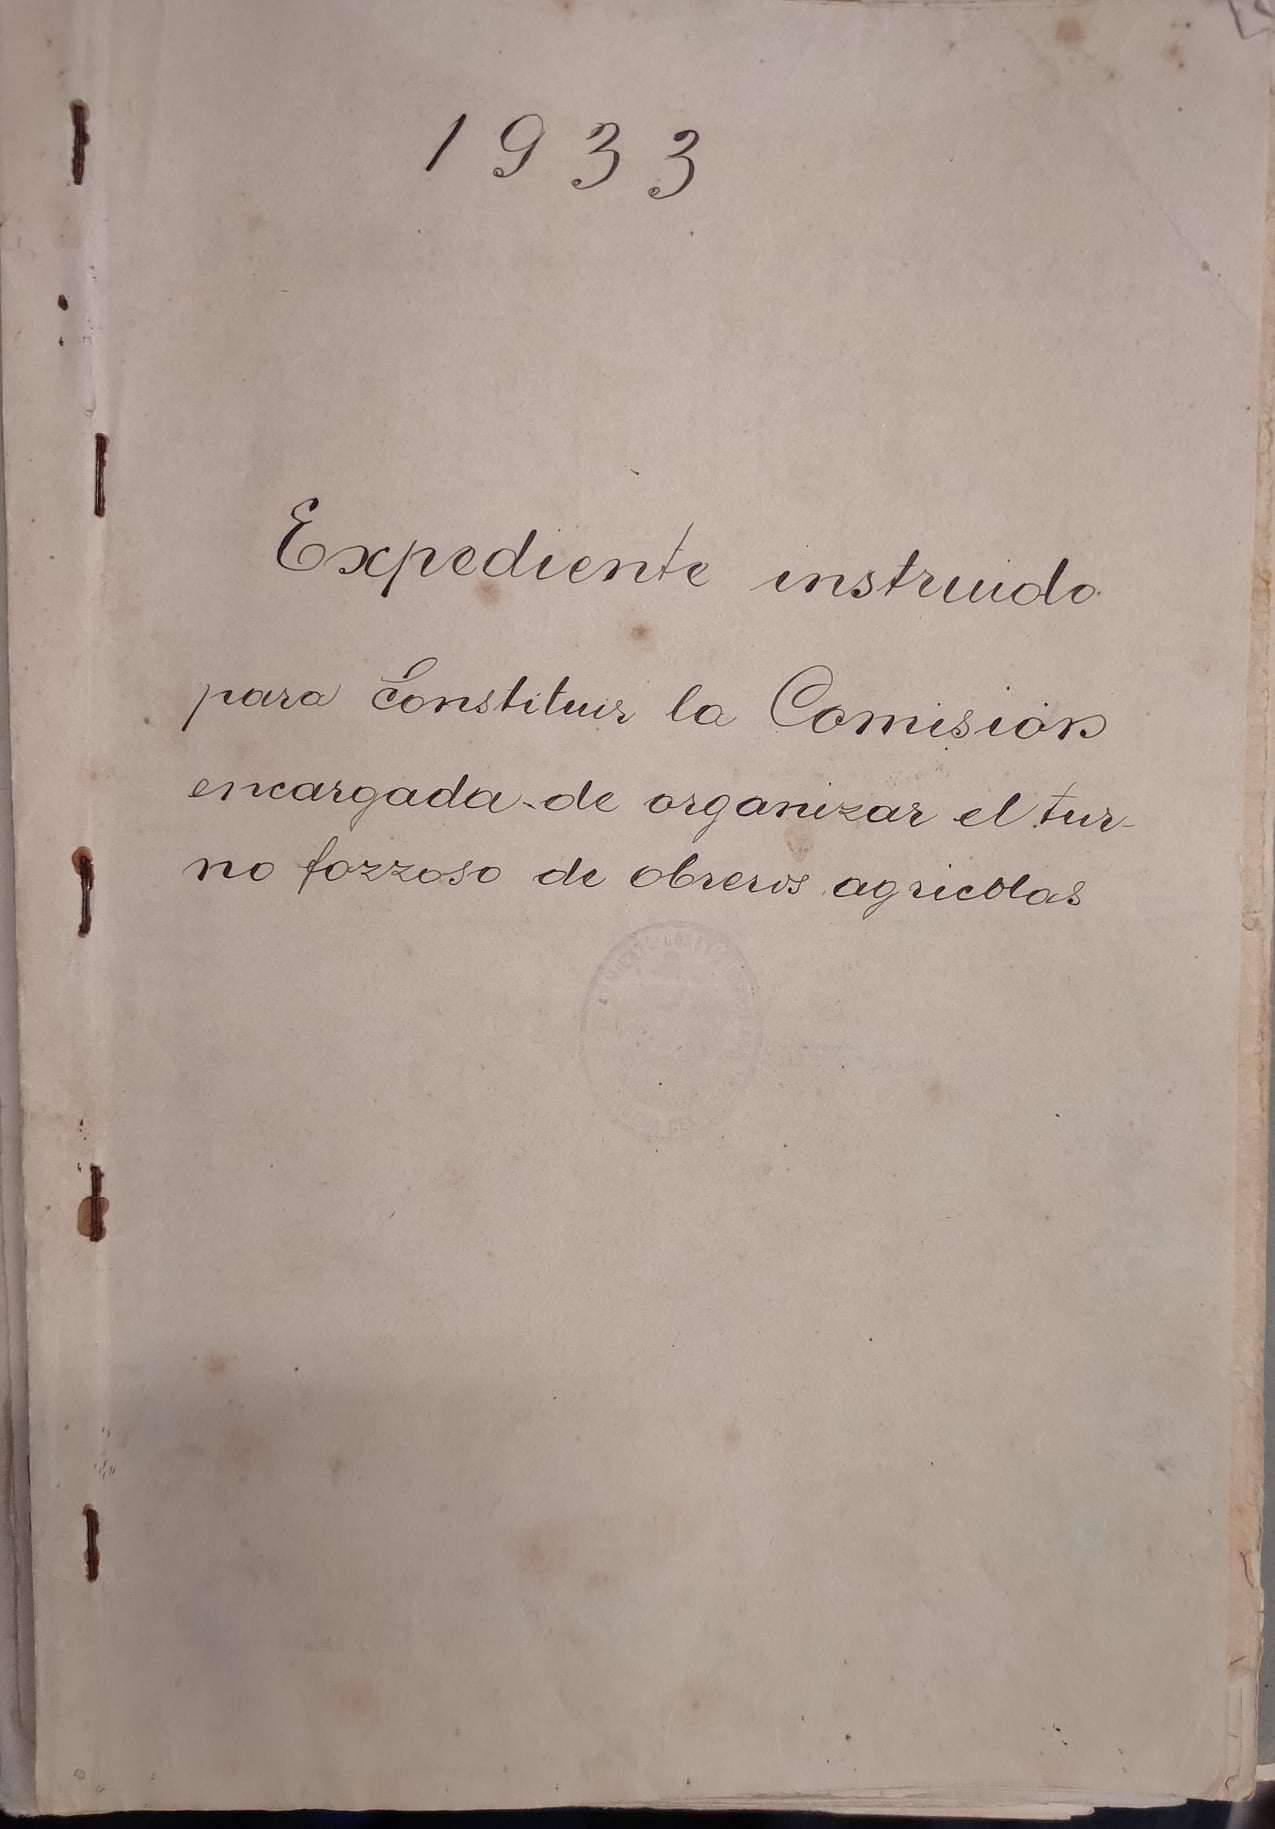 1933
Expediente instruido
para constituir la Comisión
encargada de organizar el tur-
no forzoso de obreros agricolas